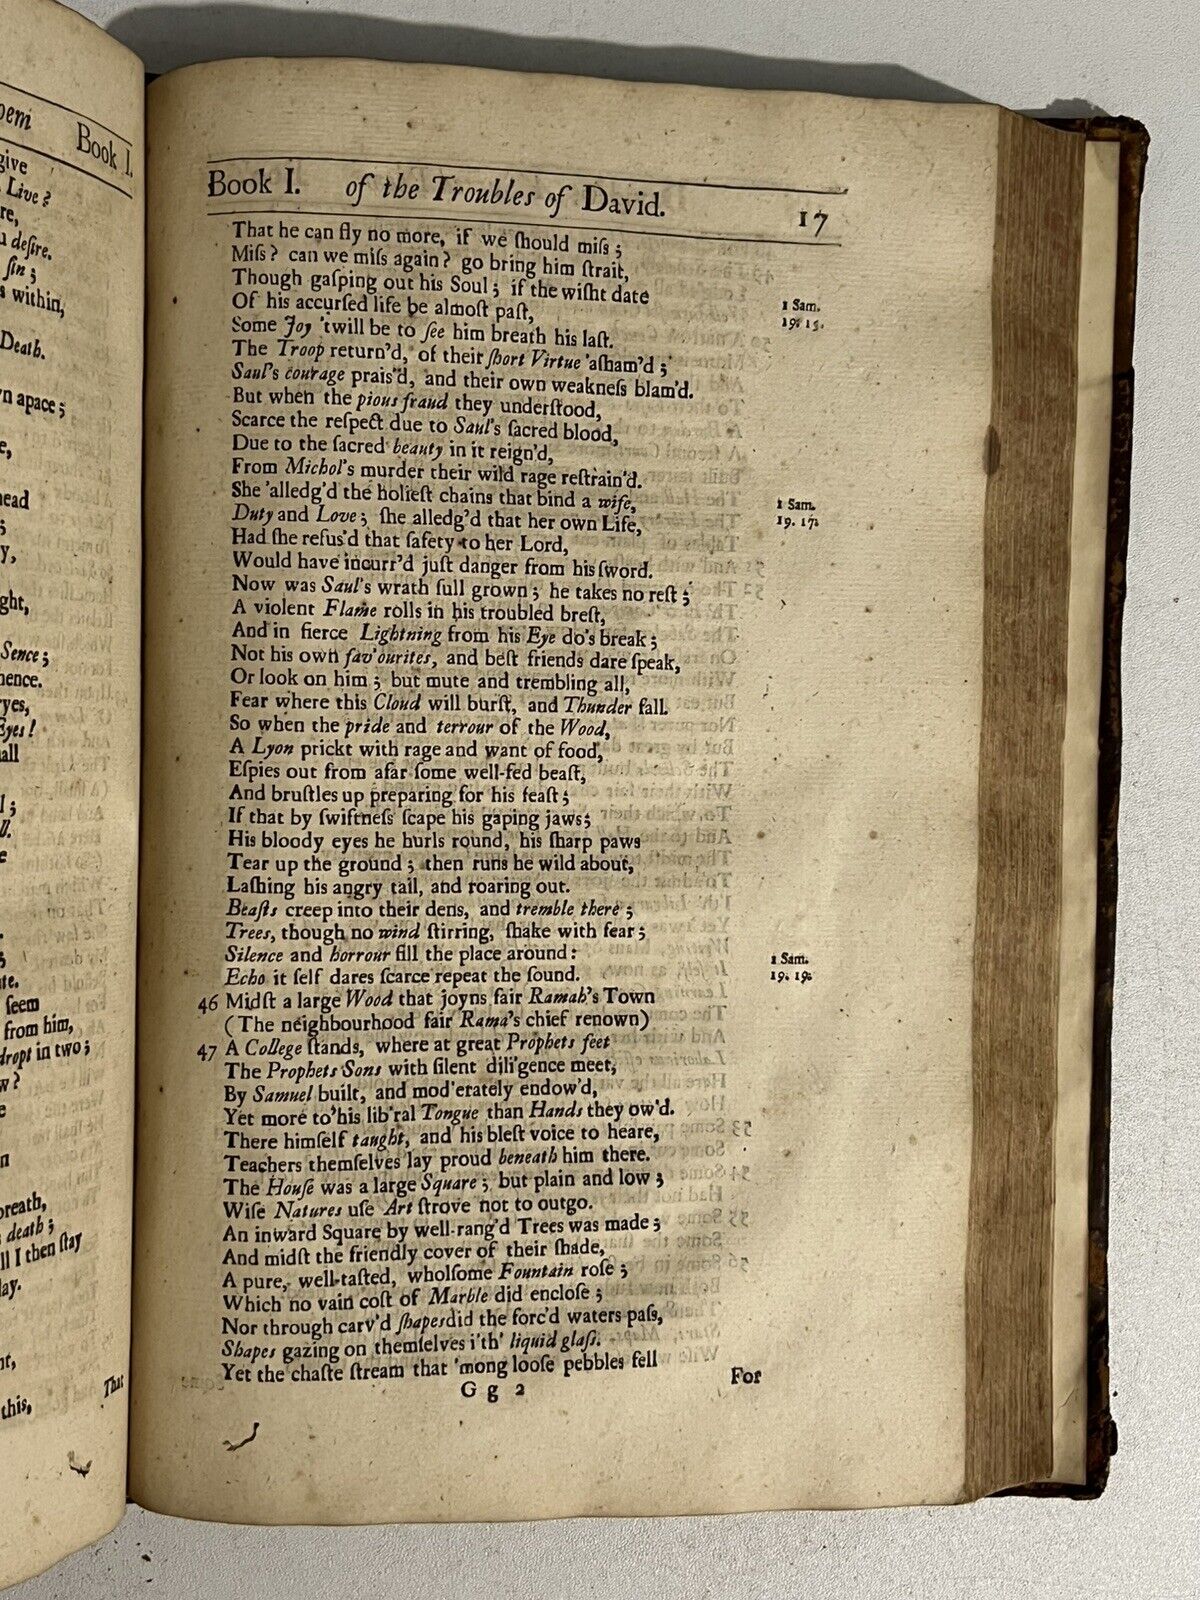 oem Book I.
give
Live?
re,
u desire.
sin;
s within,
Death.
n apace;
e,
ead
;
y,
ght,
Sence;
nence.
ryes,
Eyes!
all
l;
ll.
e
.
;
te.
seem
from him,
dropt in two;
w?
e
n
breath,
death;
ll I then ſtay
lay.
nt,
this,
That
Book I. of the Troubles of David. 17
That he can fly no more, if we ſhould miſs;
Miſs? can we miſs again? go bring him ſtrait,
Though gaſping out his Soul; if the wiſht date
Of his accurſed life be almoſt paſt,
Some Joy 'twill be to ſee him breath his laſt.
The Troop return'd, of their ſhort Virtue 'aſham'd;
Saul's courage prais'd, and their own weakneſs blam'd.
But when the pious fraud they underſtood,
Scarce the reſpect due to Saul's ſacred blood,
Due to the ſacred beauty in it reign'd,
From Michol's murder their wild rage reſtrain'd.
She 'alledg'd the holieſt chains that bind a wife,
Duty and Love; ſhe alledg'd that her own Life,
Had ſhe refus'd that ſafety to her Lord,
Would have incurr'd juſt danger from his ſword.
Now was Saul's wrath full grown; he takes no reſt;
A violent Flame rolls in his troubled breſt,
And in fierce Lightning from his Eye do's break;
Not his own fav'ourites, and beſt friends dare ſpeak,
Or look on him; but mute and trembling all,
Fear where this Cloud will burſt, and Thunder fall.
So when the pride and terrour of the Wood,
A Lyon prickt with rage and want of food,
Eſpies out from afar ſome well-fed beaſt,
And bruſtles up preparing for his feaſt;
If that by ſwiftneſs ſcape his gaping jaws;
His bloody eyes he hurls round, his ſharp paws
Tear up the ground; then runs he wild about,
Laſhing his angry tail, and roaring out.
Beaſts creep into their dens, and tremble there;
Trees, though no wind ſtirring, ſhake with fear;
Silence and horrour fill the place around:
Echo it ſelf dares ſcarce repeat the ſound.
46 Midſt a large Wood that joyns fair Ramah's Town
(The neighbourhood fair Rama's chief renown)
47 A College ſtands, where at great Prophets feet
The Prophets Sons with ſilent dili'gence meet,
By Samuel built, and mod'erately endow'd,
Yet more to'his lib'ral Tongue than Hands they ow'd.
There himſelf taught, and his bleſt voice to heare,
Teachers themſelves lay proud beneath him there.
The Houſe was a large Square; but plain and low;
Wiſe Natures uſe Art ſtrove not to outgo.
An inward Square by well-rang'd Trees was made;
And midſt the friendly cover of their ſhade,
A pure, well-taſted, wholſome Fountain roſe;
Which no vain coſt of Marble did encloſe;
Nor through carv'd ſhapes did the forc'd waters paſs,
Shapes gazing on themſelves i'th' liquid glaſs.
Yet the chaſte ſtream that 'mong looſe pebbles fell
G g 2 For
1 Sam.
19. 15.
1 Sam.
19. 17.
1 Sam.
19. 19.